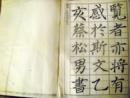 覽者亦將有
感於斯文乙
亥蔡松男書